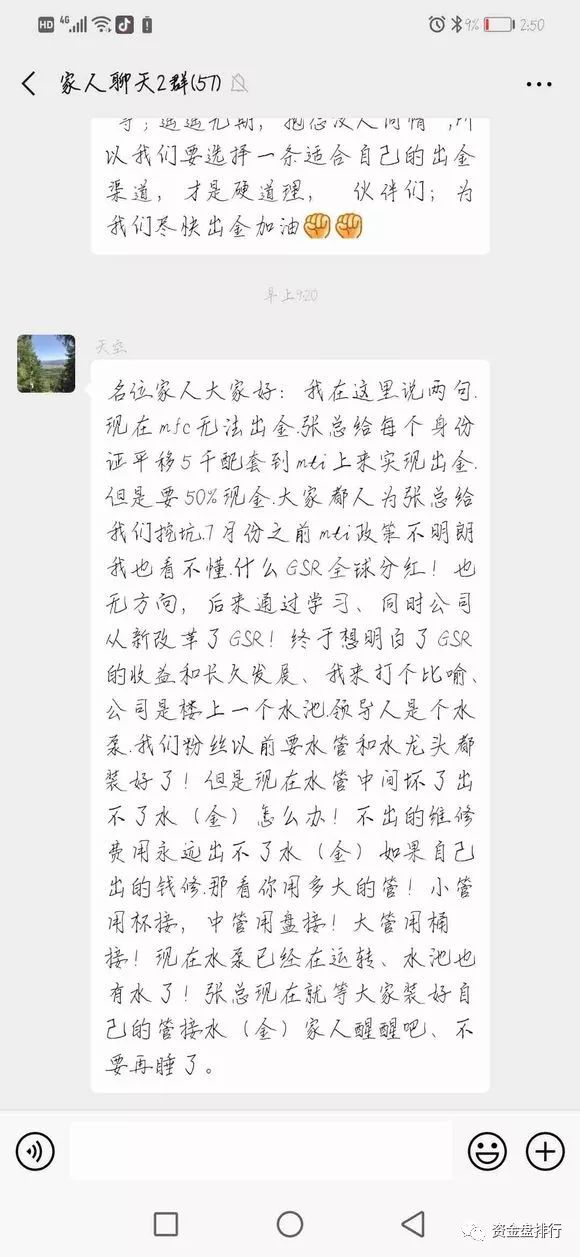 HD 4G 9% 2:50
家人聊天2群(57)
以我们要选择一条适合自己的出金
渠道，才是硬道理， 伙伴们；为
我们尽快出金加油✊✊
早上9:20
天空
各位家人大家好：我在这里说两句.
现在mfc无法出金.张总给每个身份
证平移5千配套到mti上来实现出金.
但是要50%现金.大家都人为张总给
我们挖坑.7月份之前mti政策不明朗
我也看不懂.什么GSR全球分红！也
无方向，后来通过学习、同时公司
从新改革了GSR！终于想明白了GSR
的收益和长久发展、我来打个比喻、
公司是楼上一个水池.领导人是个水
泵.我们粉丝以前要水管和水龙头都
装好了！但是现在水管中间坏了出
不了水（金）怎么办！不出的维修
费用永远出不了水（金）如果自己
出的钱修.那看你用多大的管！小管
用杯接，中管用盘接！大管用桶
接！现在水泵已经在运转、水池也
有水了！张总现在就等大家装好自
己的管接水（金）家人醒醒吧、不
要再睡了。
资金盘排行